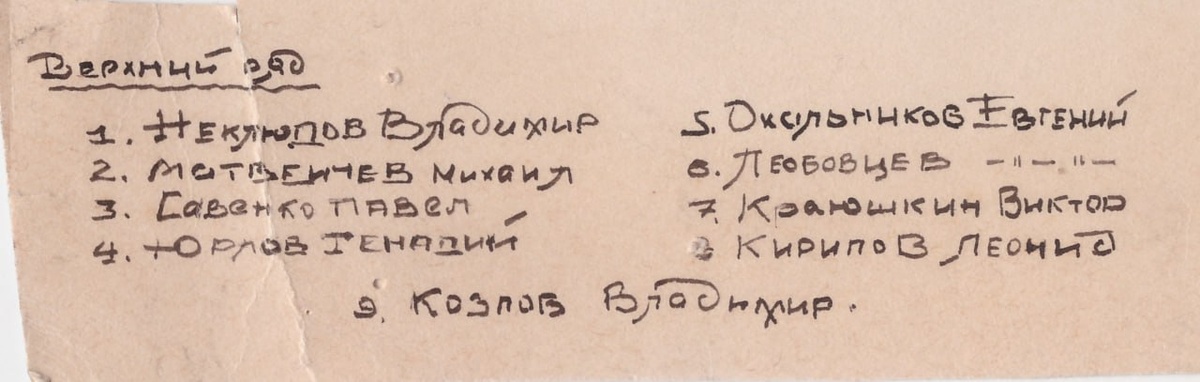 Верхний ряд
1. Неклюдов Владимир
2. Матвеичев Михаил
3. Савенко Павел
4. Орлов Генадий
5. Окольников Евгений
6. Леобовцев -"-"-
7. Краюшкин Виктор
8 Кирилов Леонид
9. Козлов Владимир.